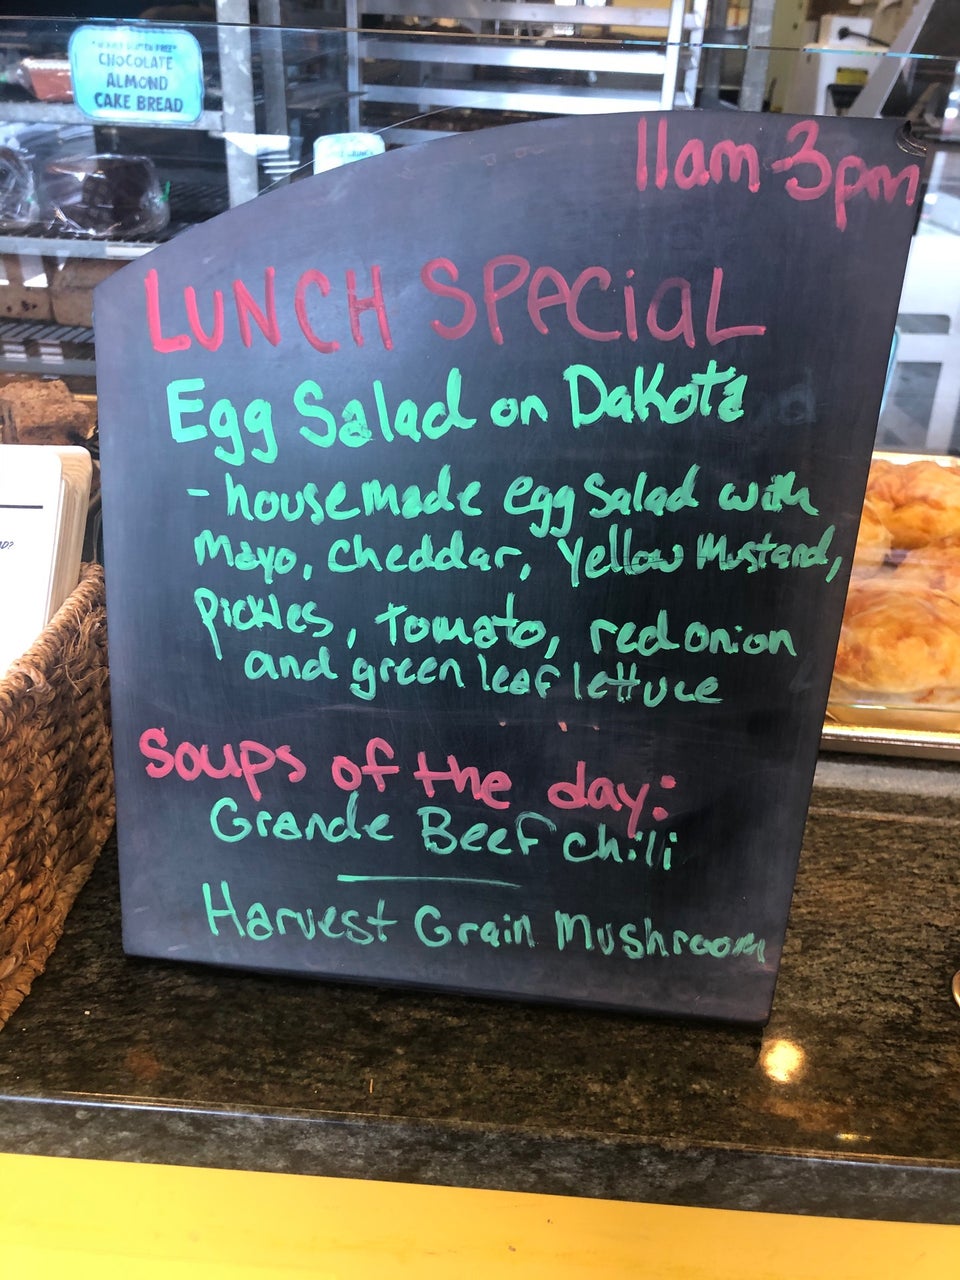 CHOCOLATE
ALMOND
CAKE BREAD
11am-3pm
LUNCH SPECiaL
Egg Salad on Dakota
- housemade egg Salad with
Mayo, cheddar, Yellow Mustard,
Pickles, Tomato, red onion
and green leaf lettuce
Soups of the day:
Grande Beef chili
Harvest Grain Mushroom